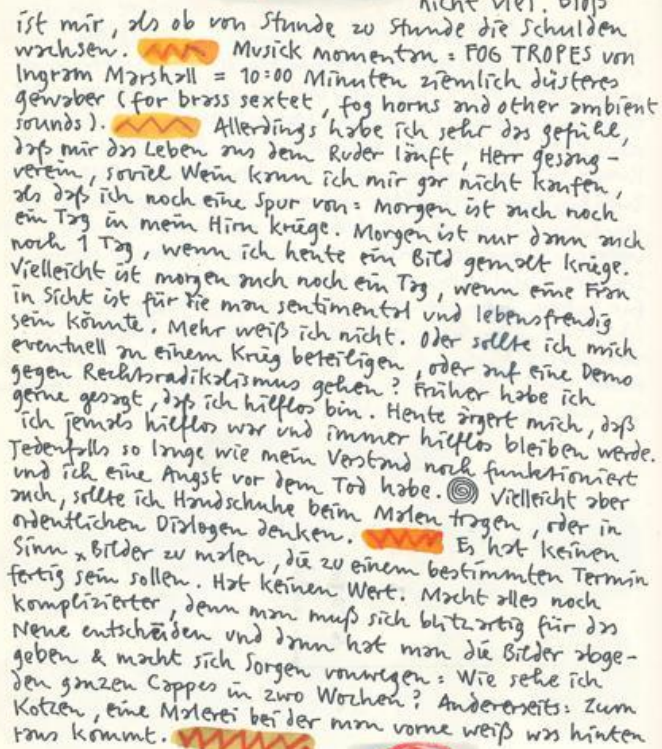 nicht viel. Bloß
ist mir, als ob von Stunde zu Stunde die Schulden
wachsen. Musick momentan: FOG TROPES von
Ingram Marshall = 10:00 Minuten ziemlich düsteres
gewaber (for brass sextet, fog horns and other ambient
sounds). Allerdings habe ich sehr das gefühl,
daß mir das Leben aus dem Ruder läuft, Herr gesang-
verein, soviel Wein kann ich mir gar nicht kaufen,
als daß ich noch eine Spur von: Morgen ist auch noch
ein Tag in mein Hirn kriege. Morgen ist nur dann auch
noch 1 Tag, wenn ich heute ein Bild gemalt kriege.
Vielleicht ist morgen auch noch ein Tag, wenn eine Frau
in Sicht ist für die man sentimental und lebensfreudig
sein könnte. Mehr weiß ich nicht. Oder sollte ich mich
eventuell an einem Krieg beteiligen, oder auf eine Demo
gegen Rechtsradikalismus gehen? Früher habe ich
gerne gesagt, daß ich hilflos bin. Heute ärgert mich, daß
ich jemals hilflos war und immer hilflos bleiben werde.
Jedenfalls so lange wie mein Verstand noch funktioniert
und ich eine Angst vor dem Tod habe. Vielleicht aber
auch, sollte ich Handschuhe beim Malen tragen, oder in
ordentlichen Dialogen denken. Es hat keinen
Sinn, Bilder zu malen, die zu einem bestimmten Termin
fertig sein sollen. Hat keinen Wert. Macht alles noch
komplizierter, denn man muß sich blitzartig für das
Neue entscheiden und dann hat man die Bilder abge-
geben & macht sich Sorgen vonwegen: Wie sehe ich
den ganzen Cappes in zwo Wochen? Andererseits: Zum
Kotzen, eine Malerei bei der man vorne weiß was hinten
raus kommt.